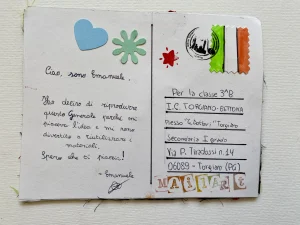 Ciao, sono Emanuele...
Ho deciso di riprodurre
questo Generale perché mi
piaceva l'idea e mi sono
divertito a riutilizzare i
materiali.
Spero che ti piaccia!
- Emanuele
Per la classe 3^B
I.C. TORGIANO-BETTONA
presso "Torgiano
Secondaria I grado
Via P. Tiradossi n.14
06089 - Torgiano (PG)
MAIL ART